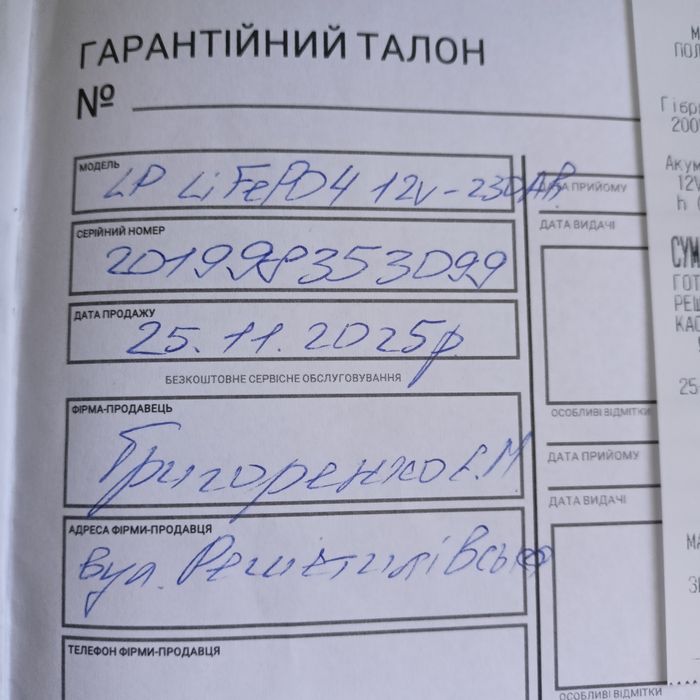 ГАРАНТІЙНИЙ ТАЛОН
№
МОДЕЛЬ
LP LiFePO4 12v-230AH
СЕРІЙНИЙ НОМЕР
201998353099
ДАТА ПРОДАЖУ
25.11.2025р
БЕЗКОШТОВНЕ СЕРВІСНЕ ОБСЛУГОВУВАННЯ
ФІРМА-ПРОДАВЕЦЬ
Григоренко Є.М
АДРЕСА ФІРМИ-ПРОДАВЦЯ
вул. Решетилівська
ТЕЛЕФОН ФІРМИ-ПРОДАВЦЯ
ДАТА ПРИЙОМУ
ДАТА ВИДАЧІ
ОСОБЛИВІ ВІДМІТКИ
ДАТА ПРИЙОМУ
ДАТА ВИДАЧІ
ОСОБЛИВІ ВІДМІТКИ
М
ПОЛ
Гібри
200
Акум
12V
h (
СУМ
ГОТ
РЕШ
КАС
25
МА